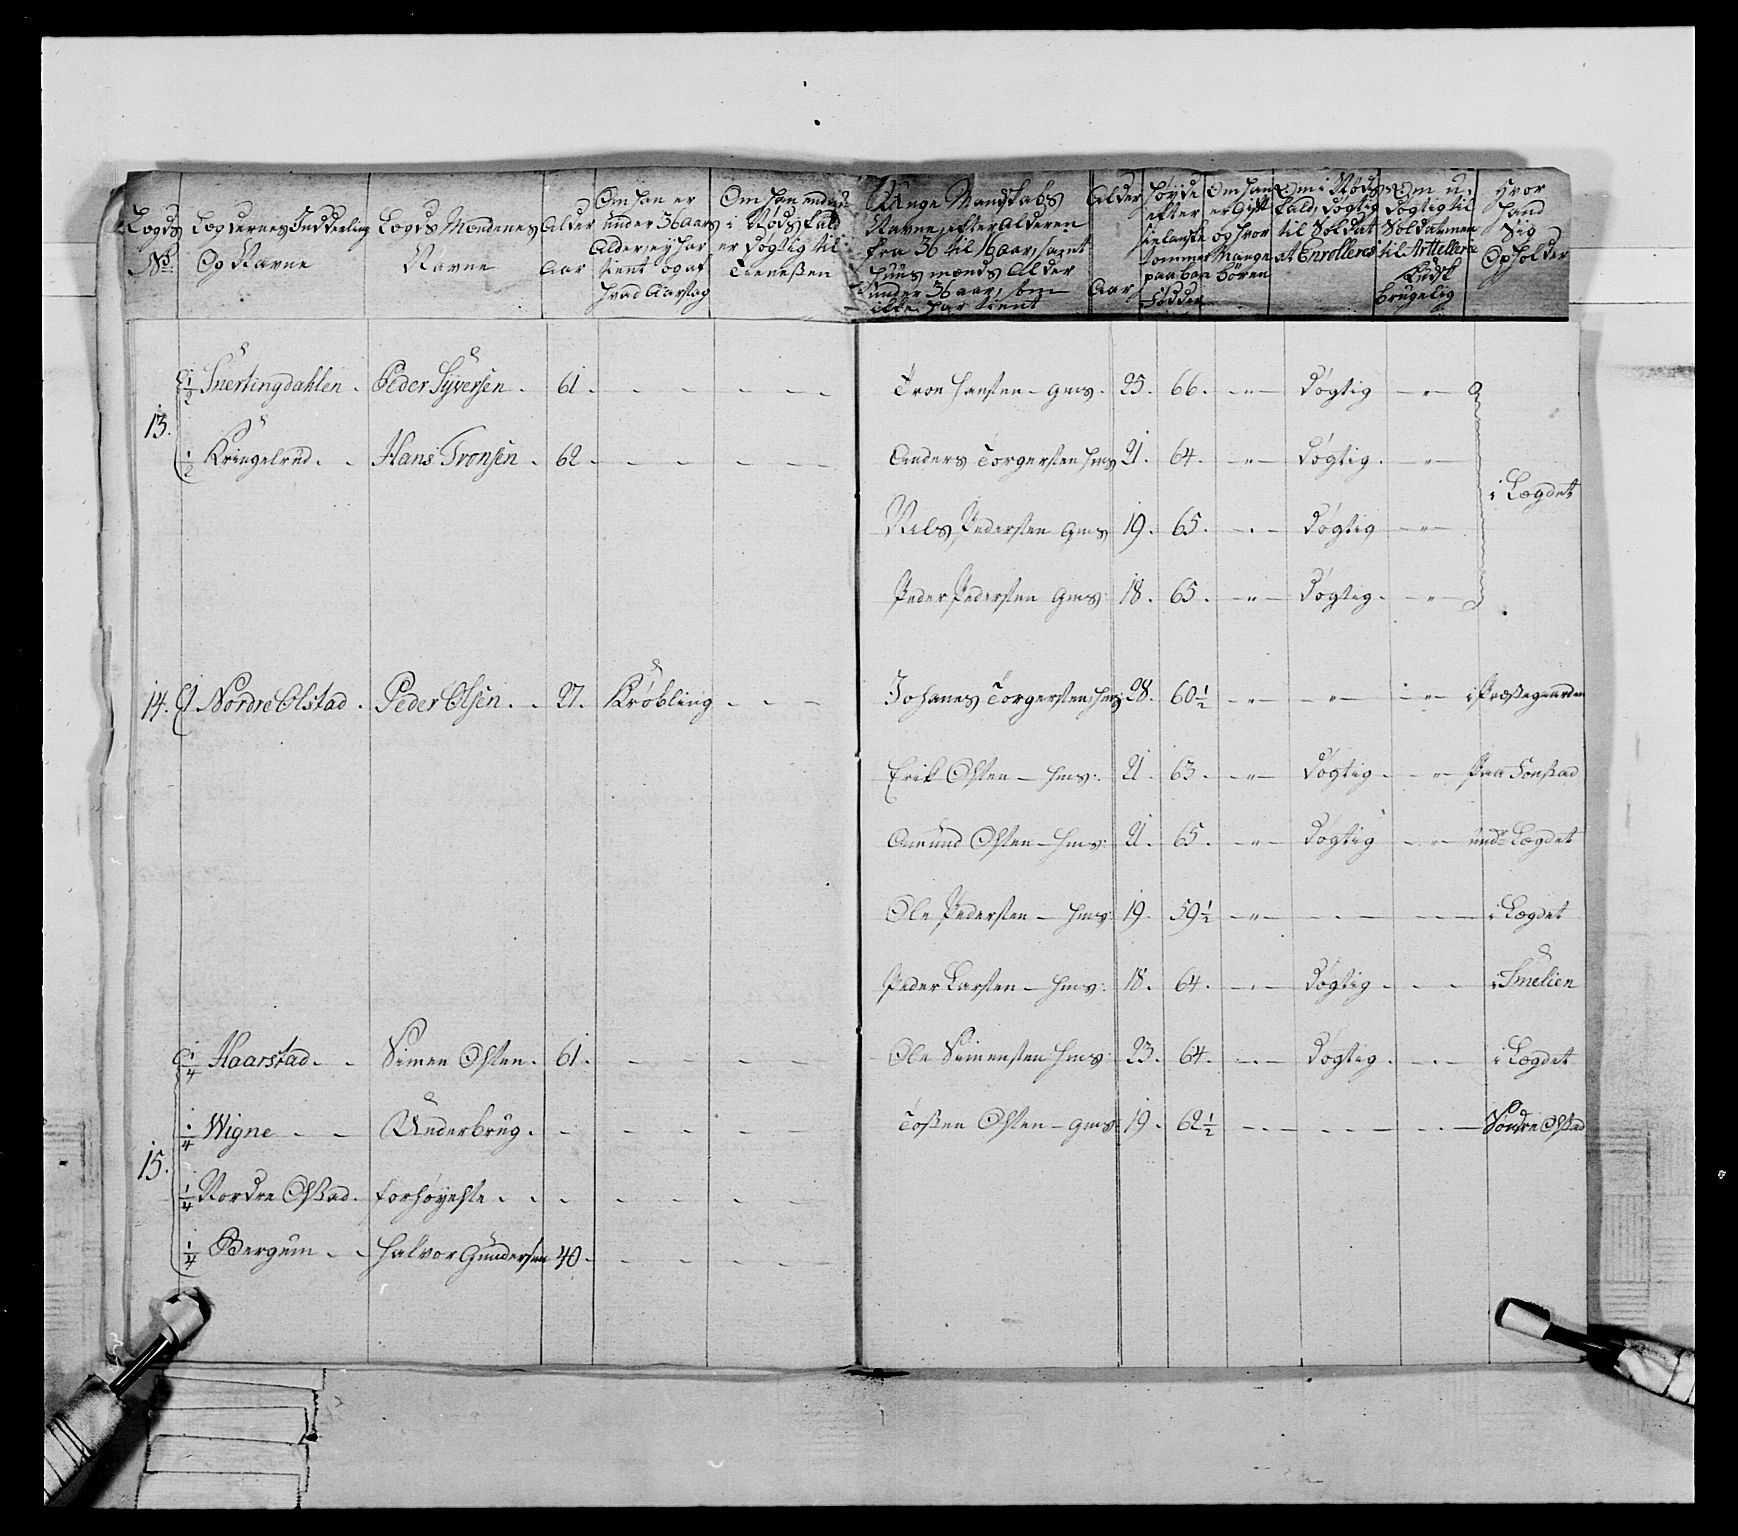 Legds No. | Legdernes Inddeeling Og Navne | Legds Mændenes Navne | Alder Aar | Om han er under 36 aars Alder ey har tient og af hvad Aarsag | Om han endnu i Nøds fald er døgtig til Tienesten | Unge Mandskabs Navne, efter Alderen fra 36 til 16 aar, samt Huusmænds Alder under 36 aar, som ikke har tient | Alder Aar | Høyde efter Sielanske tommer paa bare Fødder | Om han er Gift og hvor Mange Børen | Om i Nøds fald, døgtig til Soldat at Enrolleres | Om u- døgtig til Soldat men til Artellerie Kudsk brugelig | Hvor Hand Sig Opholder
13. ½ Snertingdahlen . Peder Syversen . 61 . Tron Hansen - Gms . 25 . 66 . - " - Døgtig - " -
½ Kringelrud . . Hans Tronsen . 62 . Anders Torgersen Hms 21 . 64 . - " - Døgtig . - " - i Legdet
Nels Pedersen Gms 19 . 65 . - . - Døgtig - " -
Peder Pedersen Gms: 18 . 65 . - " - Døgtig . - " -
14. 1 Nordre Olstad . Peder Olsen . . 27 . Krøbling . Johanes Torgersen Hms 28 . 60½ - " - - " - - " - i Præstegaarden
Erik Olsen - Hms: 21 . 63 . - " - Døgtig . - " - Paa
Amund Olsen - Hms: 21 . 65 . - " - Døgtig - " - und: Legdet
Ole Pedersen - Hms: 19 . 59½ - " - - . - - . - i Legdet
Peder Larsen - Hms: 18 . 64 . - . - Døgtig . - . - i Smelien
15. ¼ Haarstad . . Simen Olsen . 61 . Ole Simensen Hms: 23 . 64 . - . - Døgtig . - . - i Legdet
¼ Wigne - - Underbrug . - Tosten Olsen - Gms 19 . 62½ - . - - . - - . - Søndre Olstad
¼ Nordre Olstad . forhøyeste . . -
¼ Bergum . - Halvor Gundersen 40 -